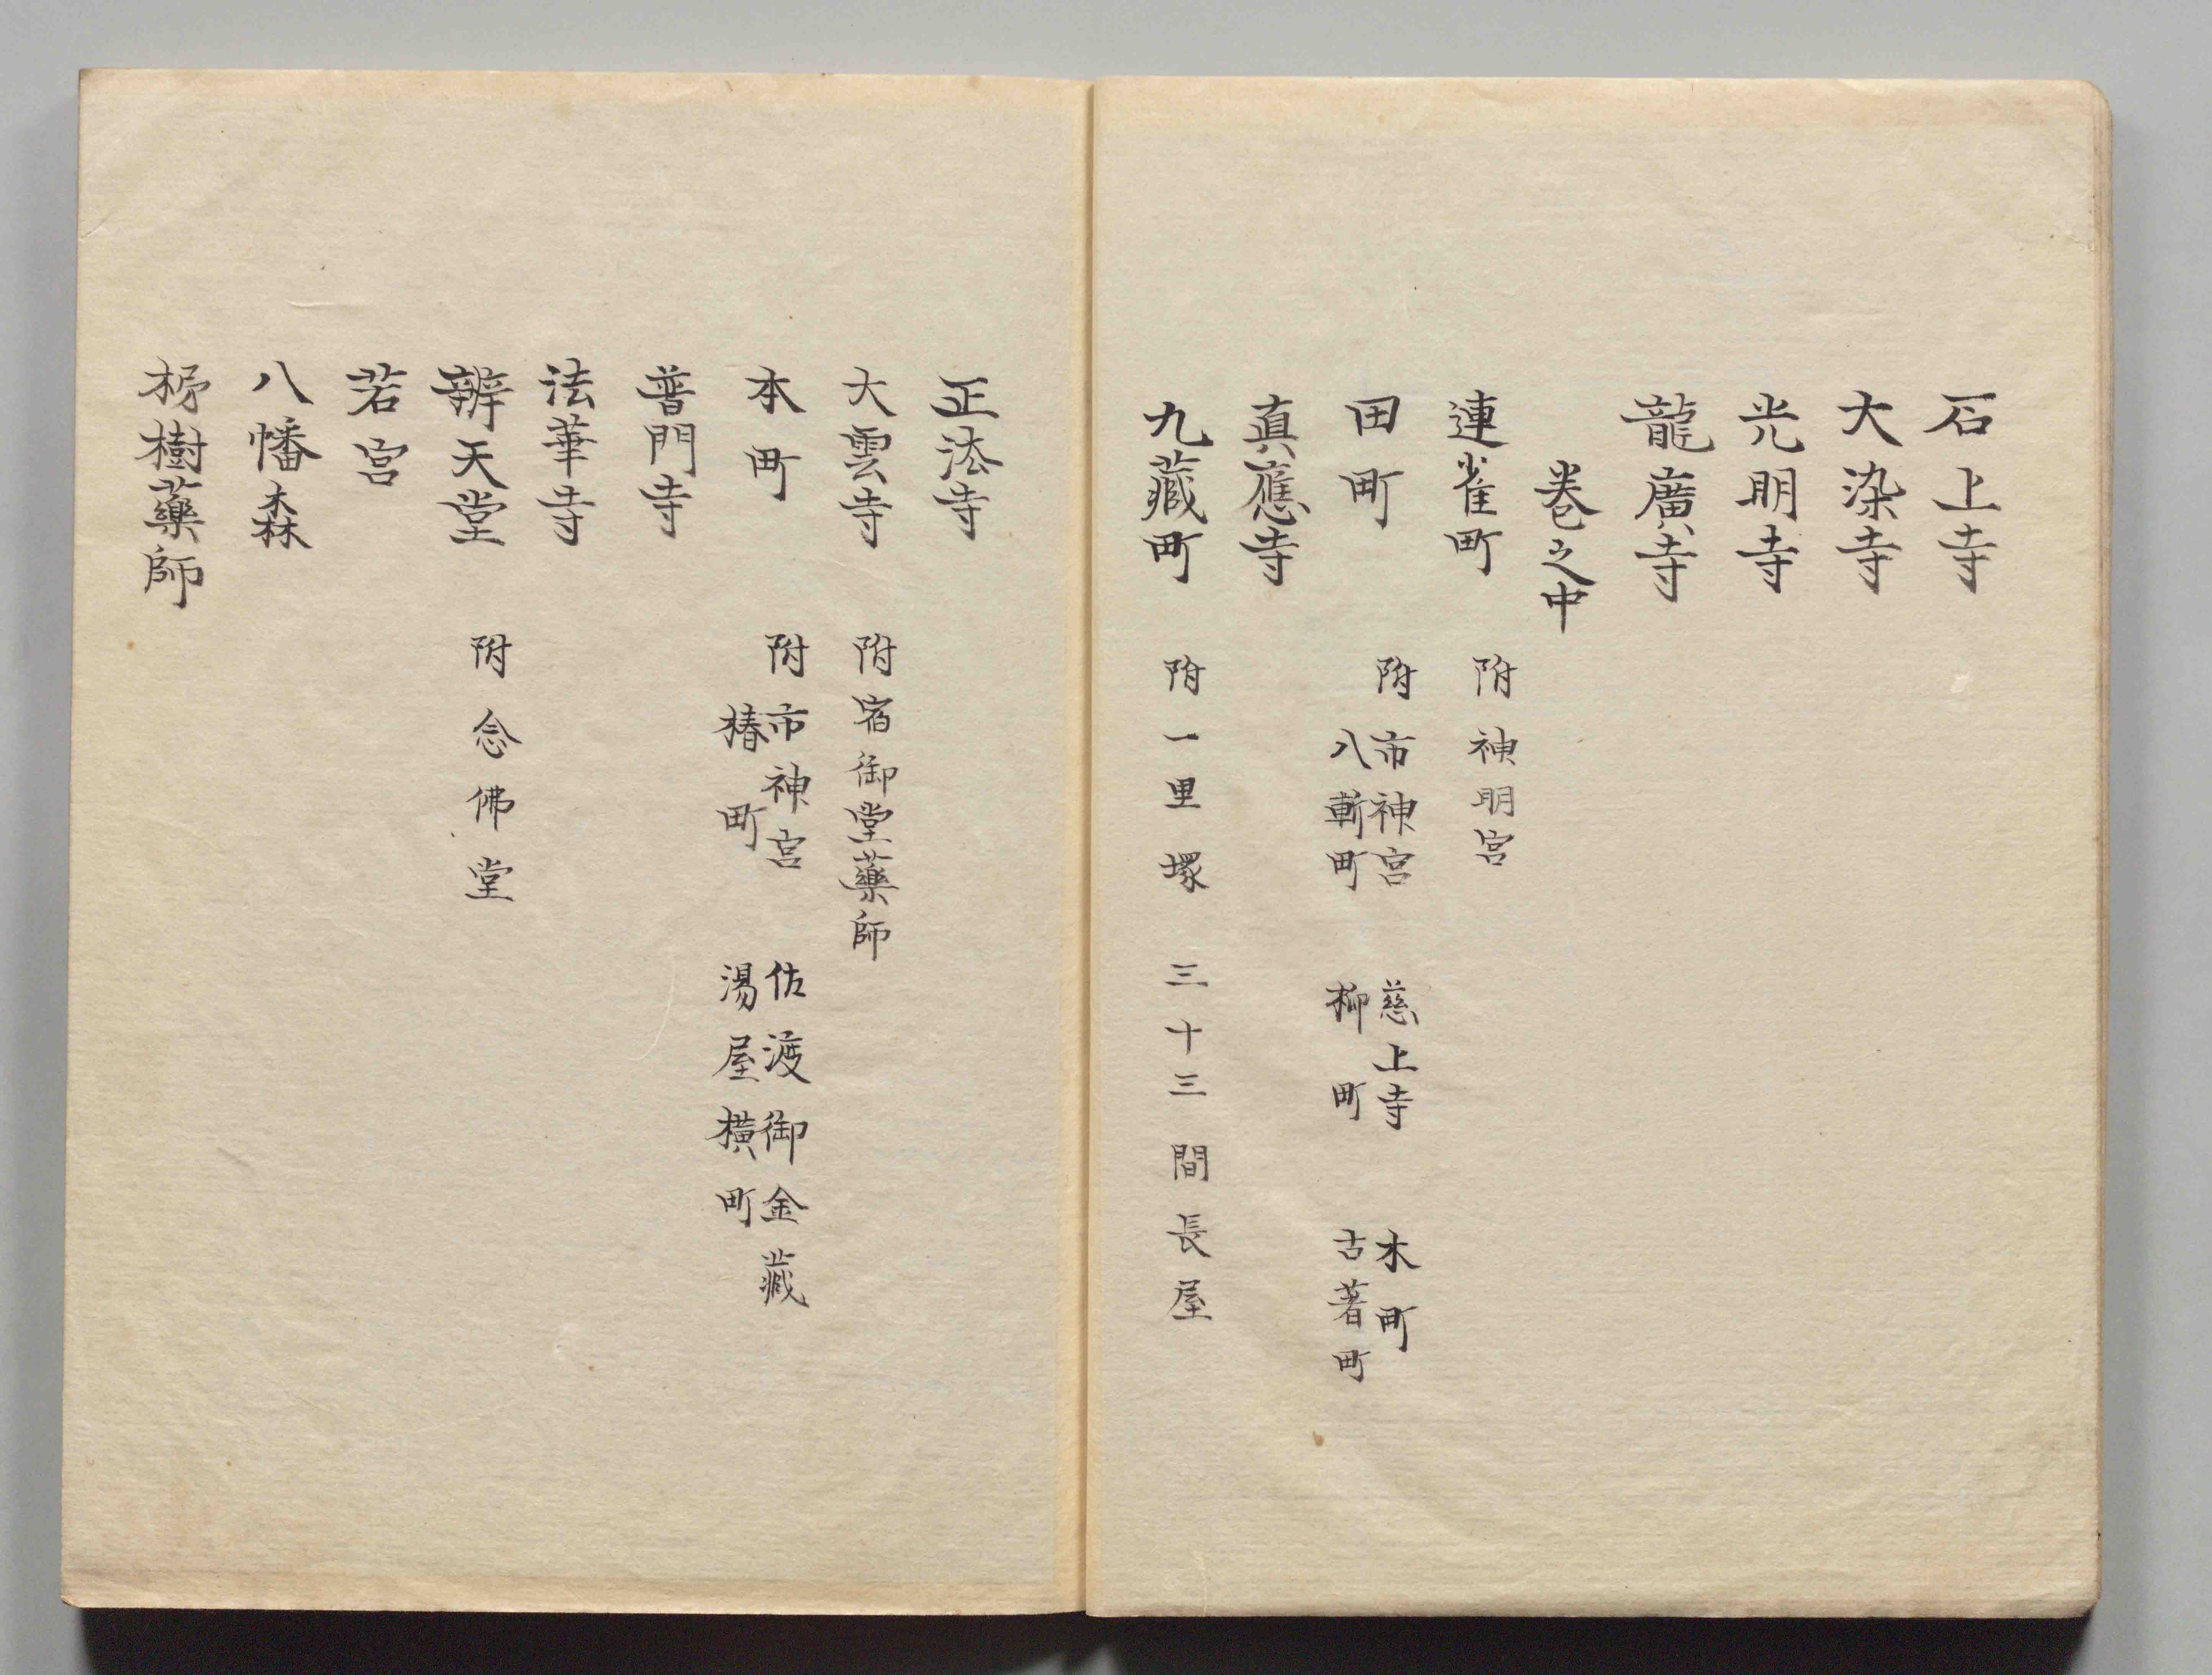 石上寺
大染寺
光明寺
龍廣寺
巻之中
連雀町 附 神明宮
田町 附 市神宮 慈上寺 木町
八軒町 柳町 古著町
真應寺
九藏町 附 一里塚 三十三間長屋
正法寺
大雲寺 附 宿御堂藥師
本町 附 市神宮 佐渡御金藏
椿町 湯屋橫町
普門寺
法華寺
辨天堂 附 念佛堂
若宮
八幡森
樹藥師